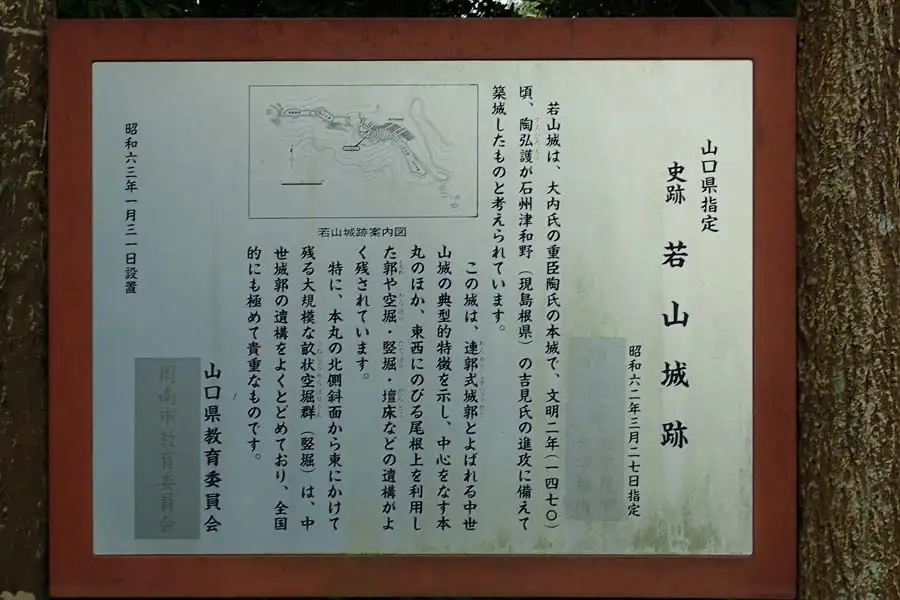 山口県指定
史跡 若山城跡
昭和六二年三月二七日指定
若山城は、大内氏の重臣陶氏の本城で、文明二年(一四七〇)
頃、陶弘護が石州津和野(現島根県)の吉見氏の進攻に備えて
築城したものと考えられています。
この城は、連郭式城郭とよばれる中世
山城の典型的特徴を示し、中心をなす本
丸のほか、東西にのびる尾根上を利用し
た郭や空堀・竪堀・壇床などの遺構がよ
く残されています。
特に、本丸の北側斜面から東にかけて
残る大規模な畝状空堀群(竪堀)は、中
世城郭の遺構をよくとどめており、全国
的にも極めて貴重なものです。
若山城跡案内図
山口県教育委員会
周南市教育委員会
昭和六三年一月三一日設置